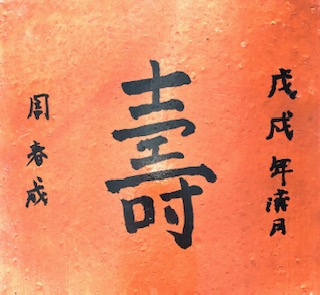 戊戌年月
壽
周春成